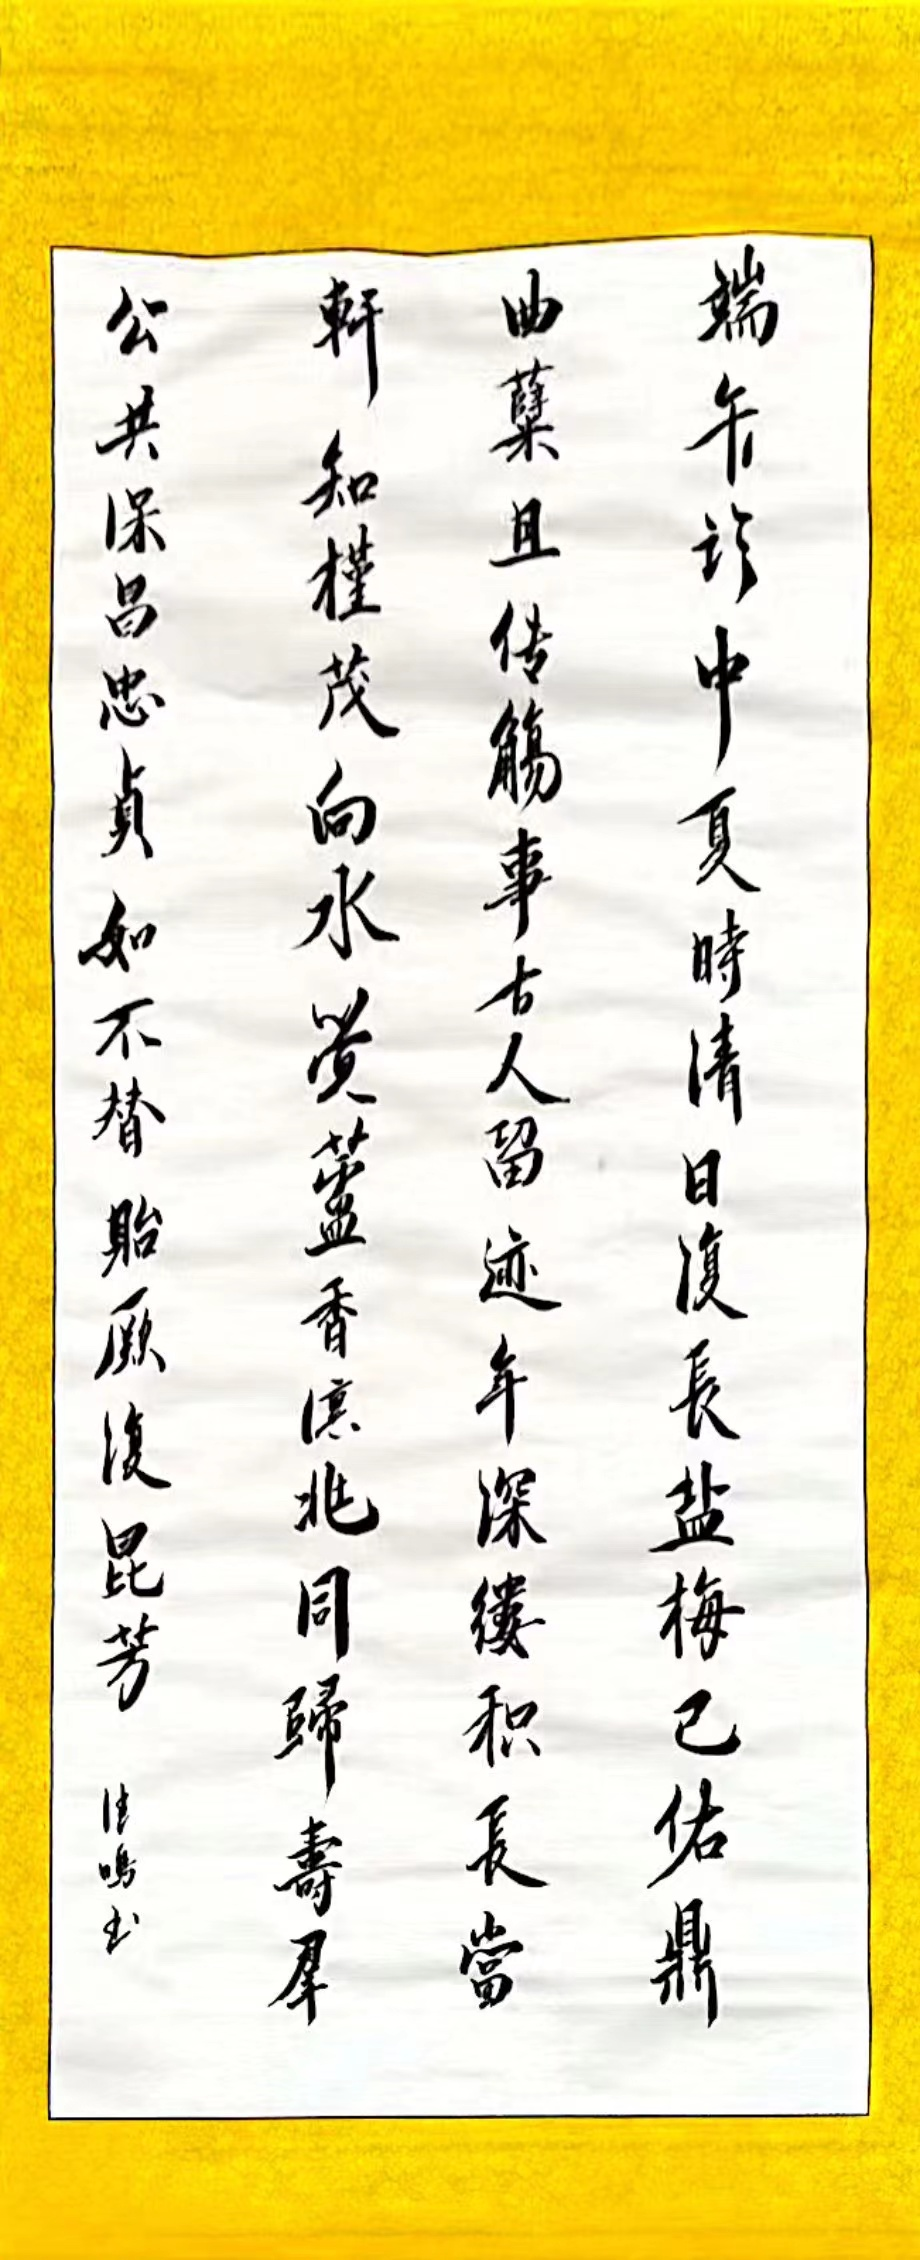 端午临中夏時清日復長盐梅已佑鼎
曲蘖且传觴事古人留迹年深缕积長當
軒知槿茂向水觉蘆香億兆同歸壽羣
公共保昌忠貞如不替貽厥復昆芳
佳鳴书